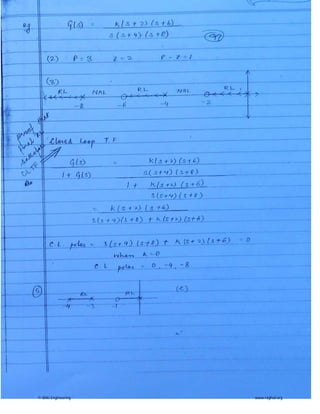 Eg G(s) = K(s+2)(s+6)
s(s+4)(s+8)
(2) P = 3 Z = 2 P - Z = 1
(3)
RL NRL RL NRL RL
-8 -6 -4 -2
Closed Loop T.F
G(s) = K(s+2)(s+6)
1 + G(s) s(s+4)(s+8)
1 + K(s+2)(s+6)
s(s+4)(s+8)
= K(s+2)(s+6)
s(s+4)(s+8) + K(s+2)(s+6)
C.L poles = s(s+4)(s+8) + K(s+2)(s+6) = 0
when K=0
C.L poles = 0, -4, -8
(5) RL RL (c)
-4 -3 -1